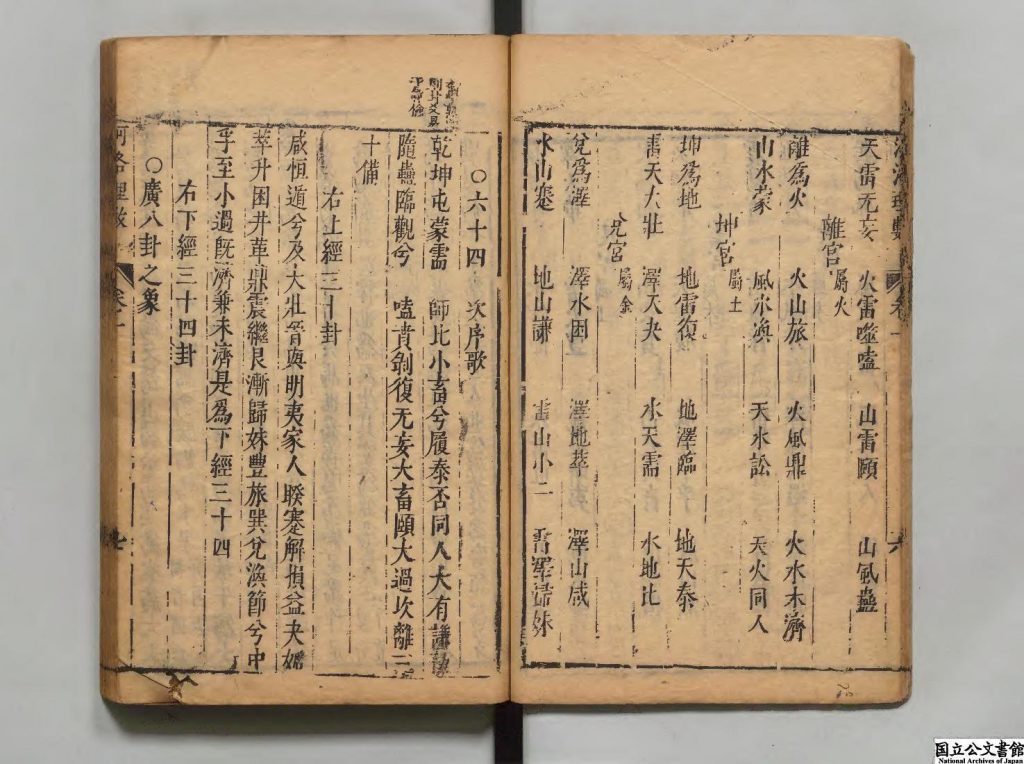 天雷无妄 火雷噬嗑 山雷頤 山風蠱
離宮 屬火
離爲火 火山旅 火風鼎 火水未濟
山水蒙 風水渙 天水訟 天火同人
坤宮 屬土
坤爲地 地雷復 地澤臨 地天泰
雷天大壯 澤天夬 水天需 水地比
兌宮 屬金
兌爲澤 澤水困 澤地萃 澤山咸
水山蹇 地山謙 雷山小 雷澤歸妹
○六十四 次序歌
乾坤屯蒙需 師比小畜兮履泰否同人大有謙
隨蠱臨觀兮 嗑賁剝復无妄大畜頤大過坎離三
十備
右上經三十卦
咸恒遁兮及大壯晉與明夷家人睽蹇解損益夬姤
萃升困井革鼎震繼艮漸歸妹豐旅巽兌渙節兮中
孚至小過旣濟兼未濟是爲下經三十四
右下經三十四卦
○廣八卦之象
卷一
国立公文書館
National Archives of Japan